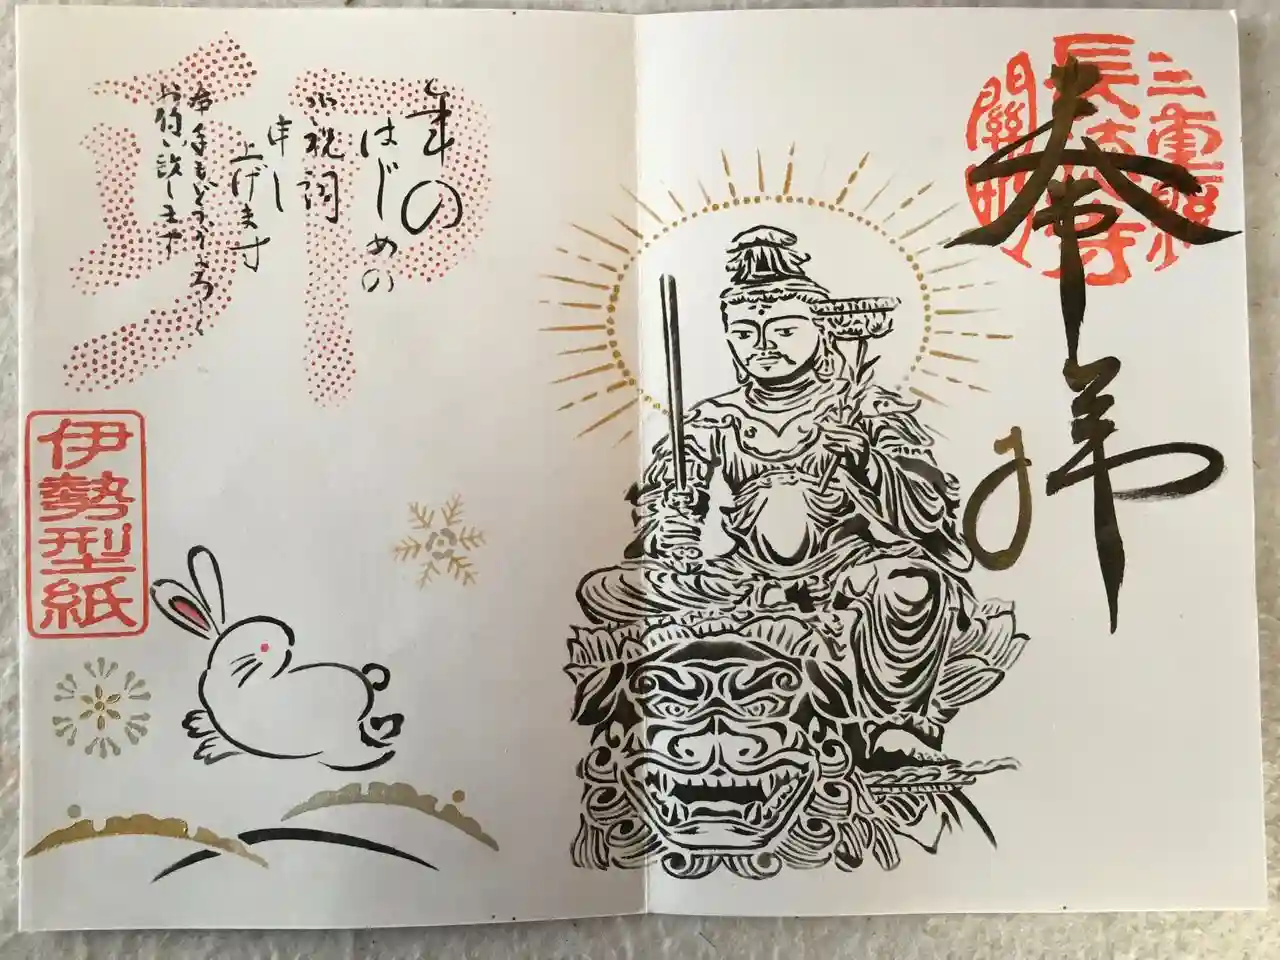 三重縣
長徳寺
關町
奉拝
年の
はじめの
御祝詞
申し
上げます
本年もどうぞよろしく
お願い致します
卯
伊勢型紙